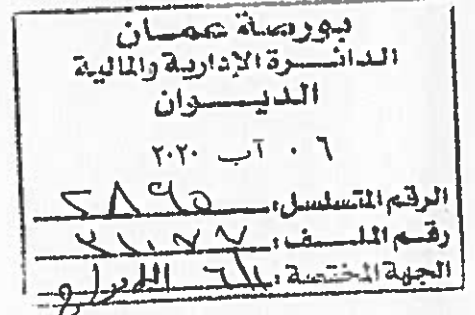 بورصة عمان
الدائرة الإدارية والمالية
الديوان
٠٦ آب ٢٠٢٠
الرقم المتسلسل: ٢٨٩٥
رقم الملف:
الجهة المختصة: